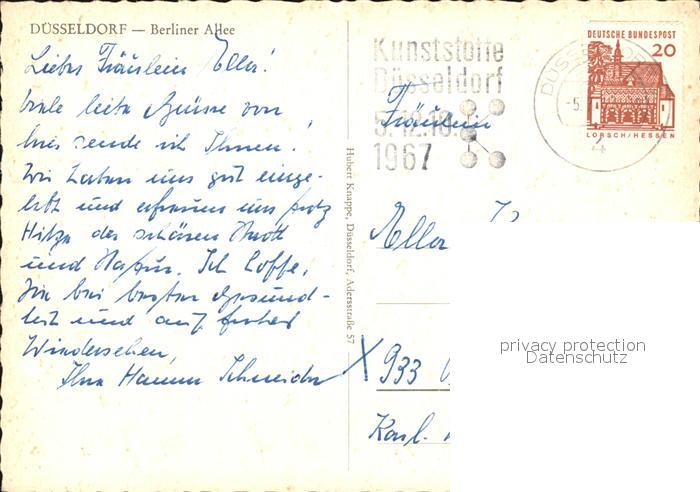 DÜSSELDORF — Berliner Allee
Liebes Fräulein Ella!
viele liebe Grüsse von
hier sende ich Ihnen!
Wir haben uns gut einge-
lebt und erfreuen uns trotz
Hitze der schönen Stadt
und Natur. Ich hoffe,
Sie bei bester Gesund-
heit und auf frohes
Wiedersehen,
Ihre Schneider
Hubert Knappe, Düsseldorf, Adersstraße 57
Kunststoffe
Düsseldorf
5.-12.10.
1967
DÜSSELDORF
-5.
4
DEUTSCHE BUNDESPOST
20
LORSCH/HESSEN
Fräulein
Ella
933
Karl-
privacy protection
Datenschutz